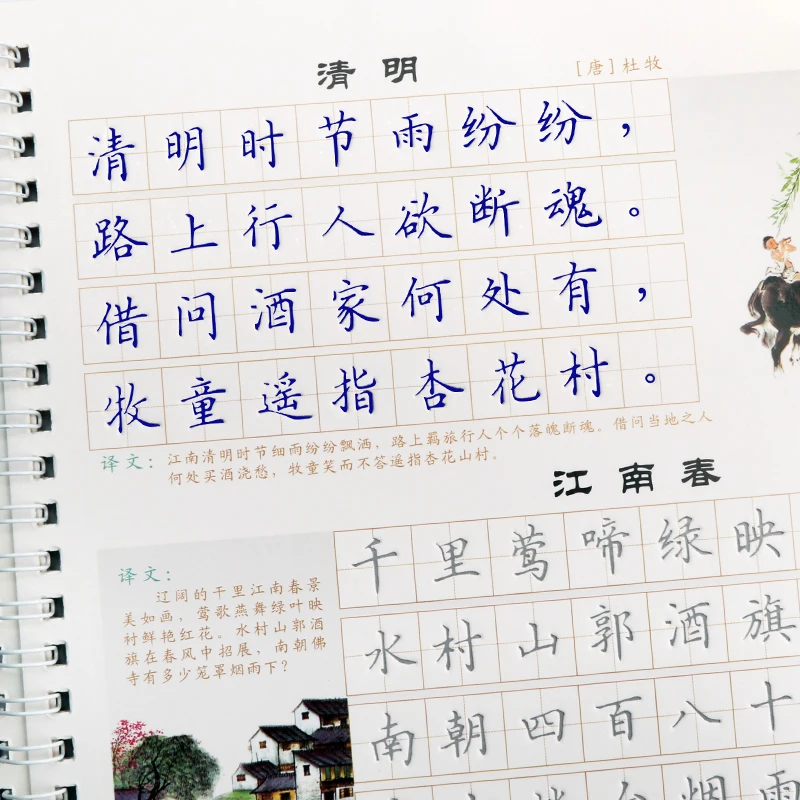 清明
[唐]杜牧
清明时节雨纷纷，
路上行人欲断魂。
借问酒家何处有，
牧童遥指杏花村。
译文：江南清明时节细雨纷纷飘洒，路上羁旅行人个个落魄断魂。借问当地之人
何处买酒浇愁，牧童笑而不答遥指杏花山村。
江南春
千里莺啼绿映
水村山郭酒旗
南朝四百八十
台烟雨
译文：
辽阔的千里江南春景
美如画，莺歌燕舞绿叶映
衬鲜艳红花。水村山郭酒
旗在春风中招展，南朝佛
寺有多少笼罩烟雨下？